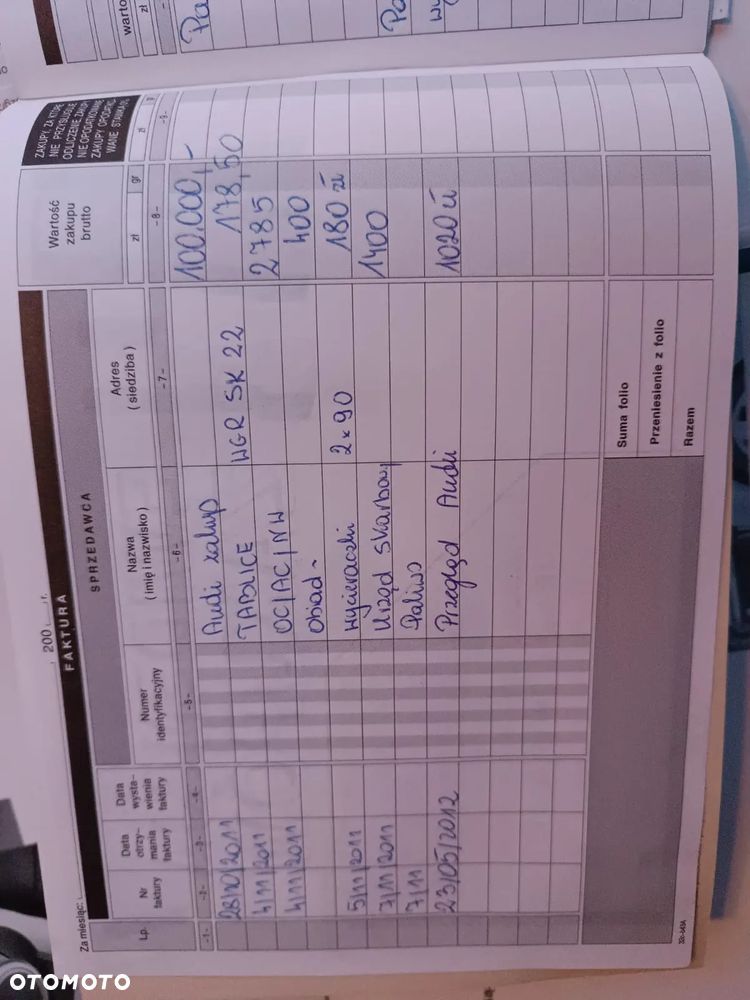 Za miesiąc: 200 r.
FAKTURA
SPRZEDAWCA
Lp.
Nr faktury
Data otrzy- mania faktury
Data wysta- wienia faktury
Numer identyfikacyjny
Nazwa ( imię i nazwisko )
Adres ( siedziba )
Wartość zakupu brutto
zł gr
ZAKUPY, ZA KTÓRE
NIE PRZYSŁUGUJE
-1- -2- -3- -4- -5- -6- -7- -8- -9-
28/10/2011 Audi zakup 100.000,-
4/11/2011 TABLICE WGR SK 22 178,50
4/11/2011 OC/AC/NW 2785
Obiad 400
5/11/2011 Wycieraczki 2x90 180 zł
7/11/2011 Urząd Skarbowy 1400
7/11 Paliwo
23/05/2012 Przegląd Audi 1020 zł
Suma folio
Przeniesienie z folio
Razem
OTOMOTO